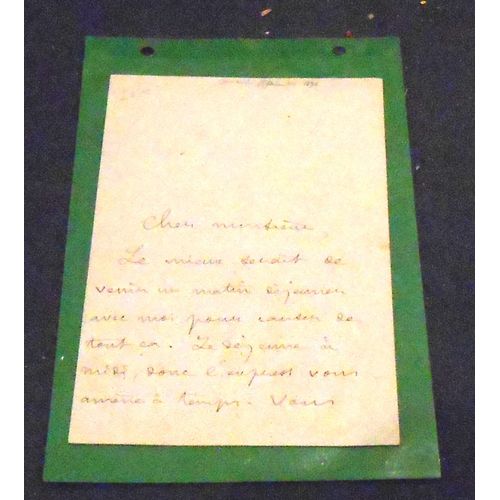 Cher monsieur,
Le mieux serait de
venir un matin déjeuner
avec moi pour causer de
tout ca. Je déjeune à
midi, donc l'express vous
amène à temps. Vous